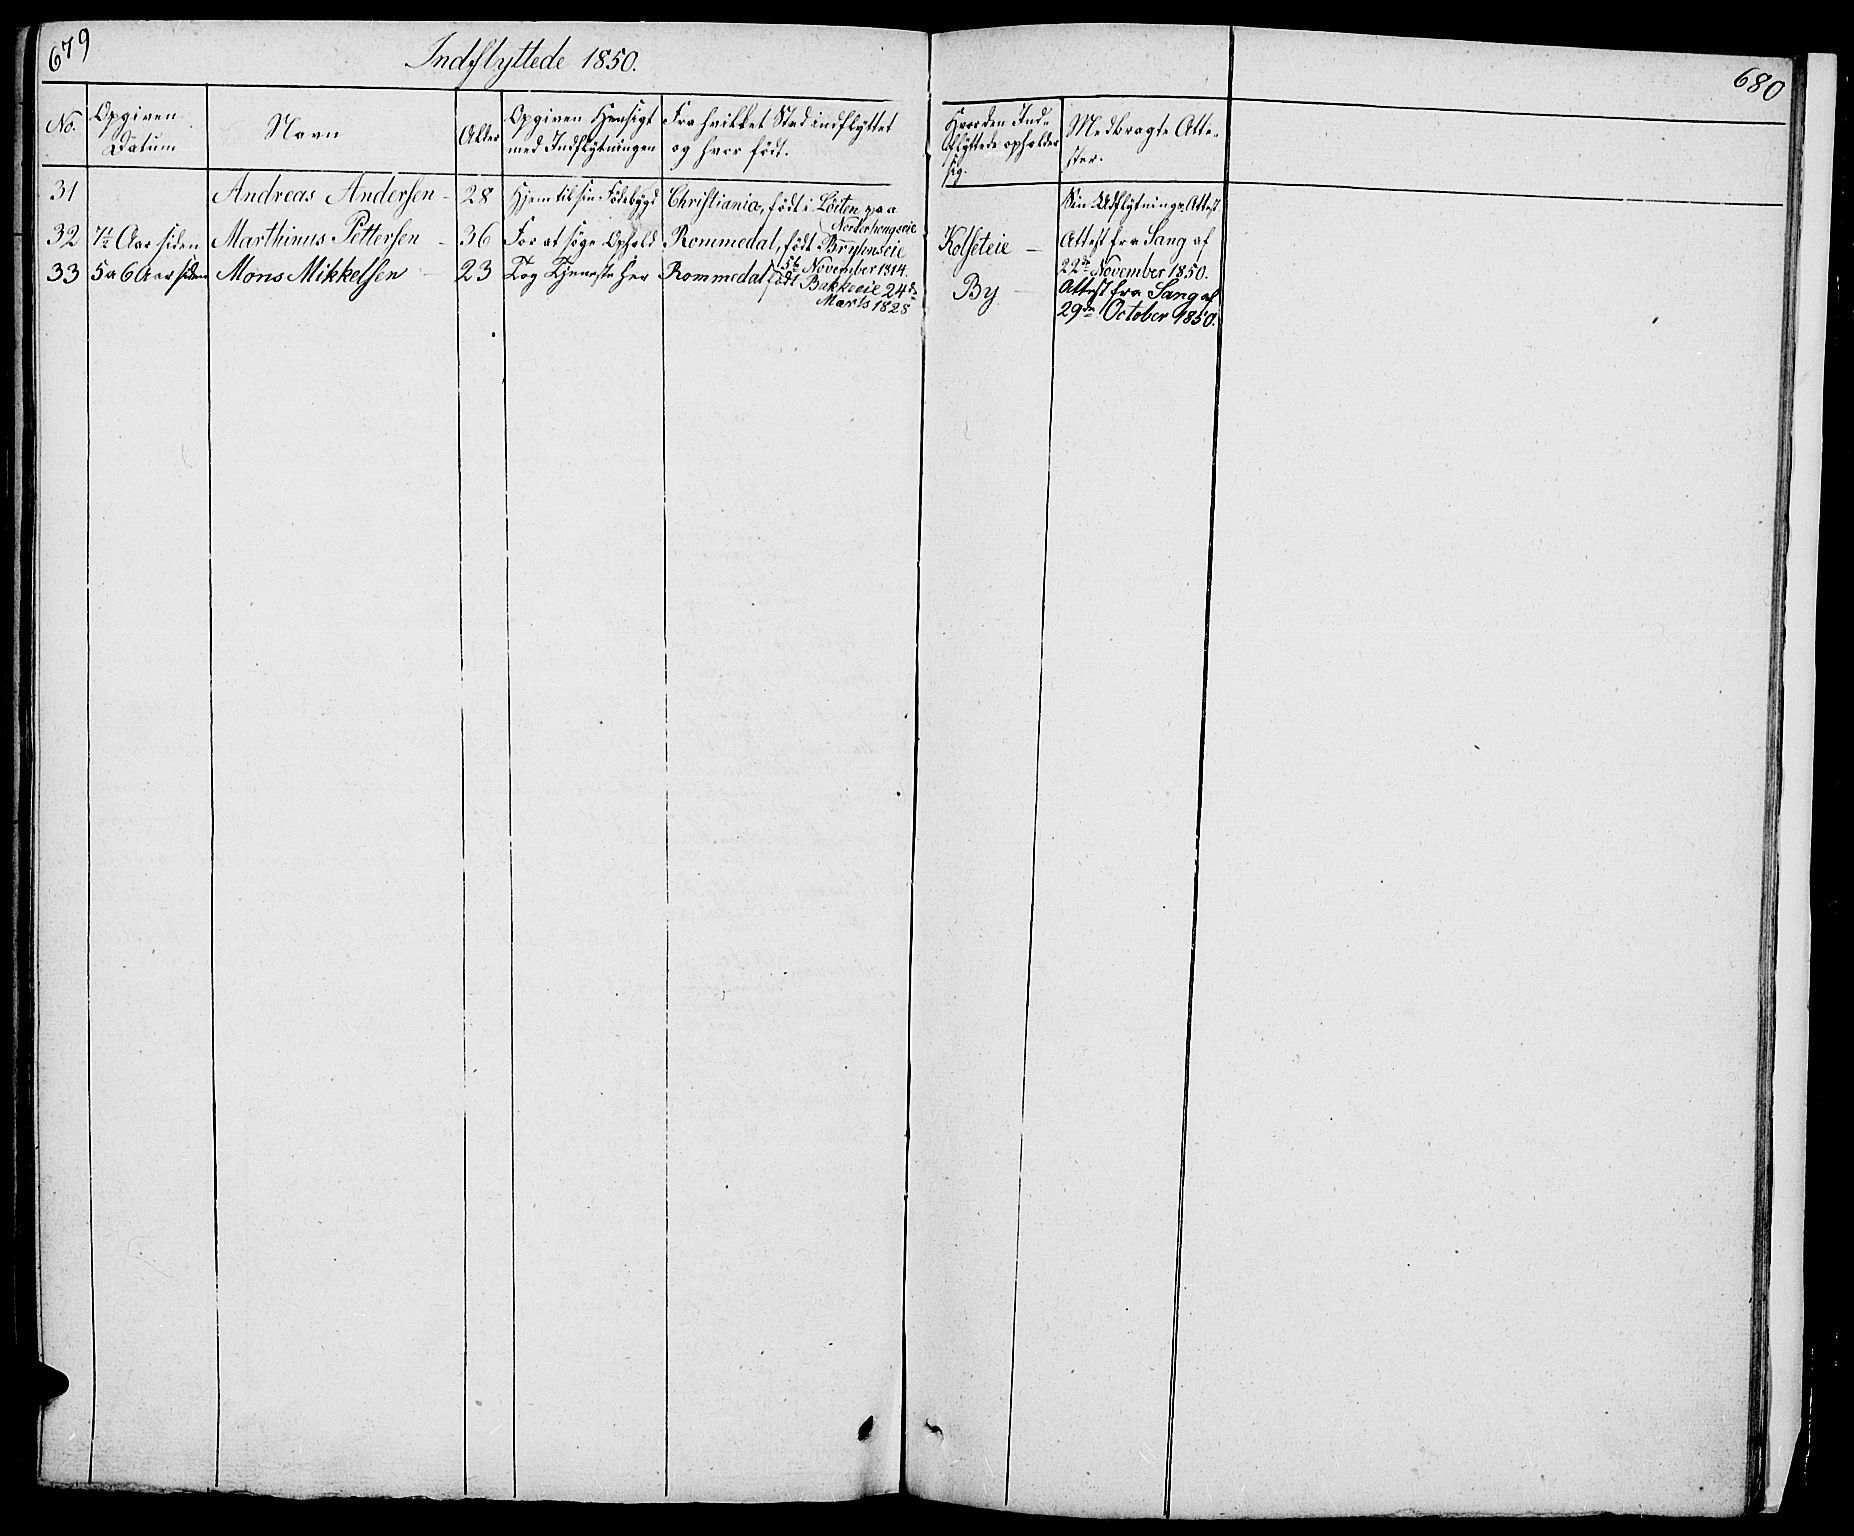 679
Indflyttede 1850.
680
No. Opgiven Datum Navn Alder Opgiven Hensigt med Indflytningen Fra hvilket Sted indflyttet og hvor født. Hvor den Indflyttede opholder sig. Medbragte Attester.
31 Andreas Andersen - 28 Hjem til sin Fødebygd Christiania, født i Løiten paa Sin Udflytnings Attest
32 7½ Aar siden Marthinus Pettersen - 36 For at søge Ophold Rommedal, født Brynseie 5te November 1814. Kolseteie - Attest fra Sang af 22de November 1850.
33 5 a 6 Aar siden Mons Mikkelsen - 23 Tog Tjeneste her Rommedal født Bakkeeie 24de Marts 1828 By - Attest fra Sang af 29de October 1850.